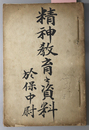 精神教育ノ資料
於保中尉